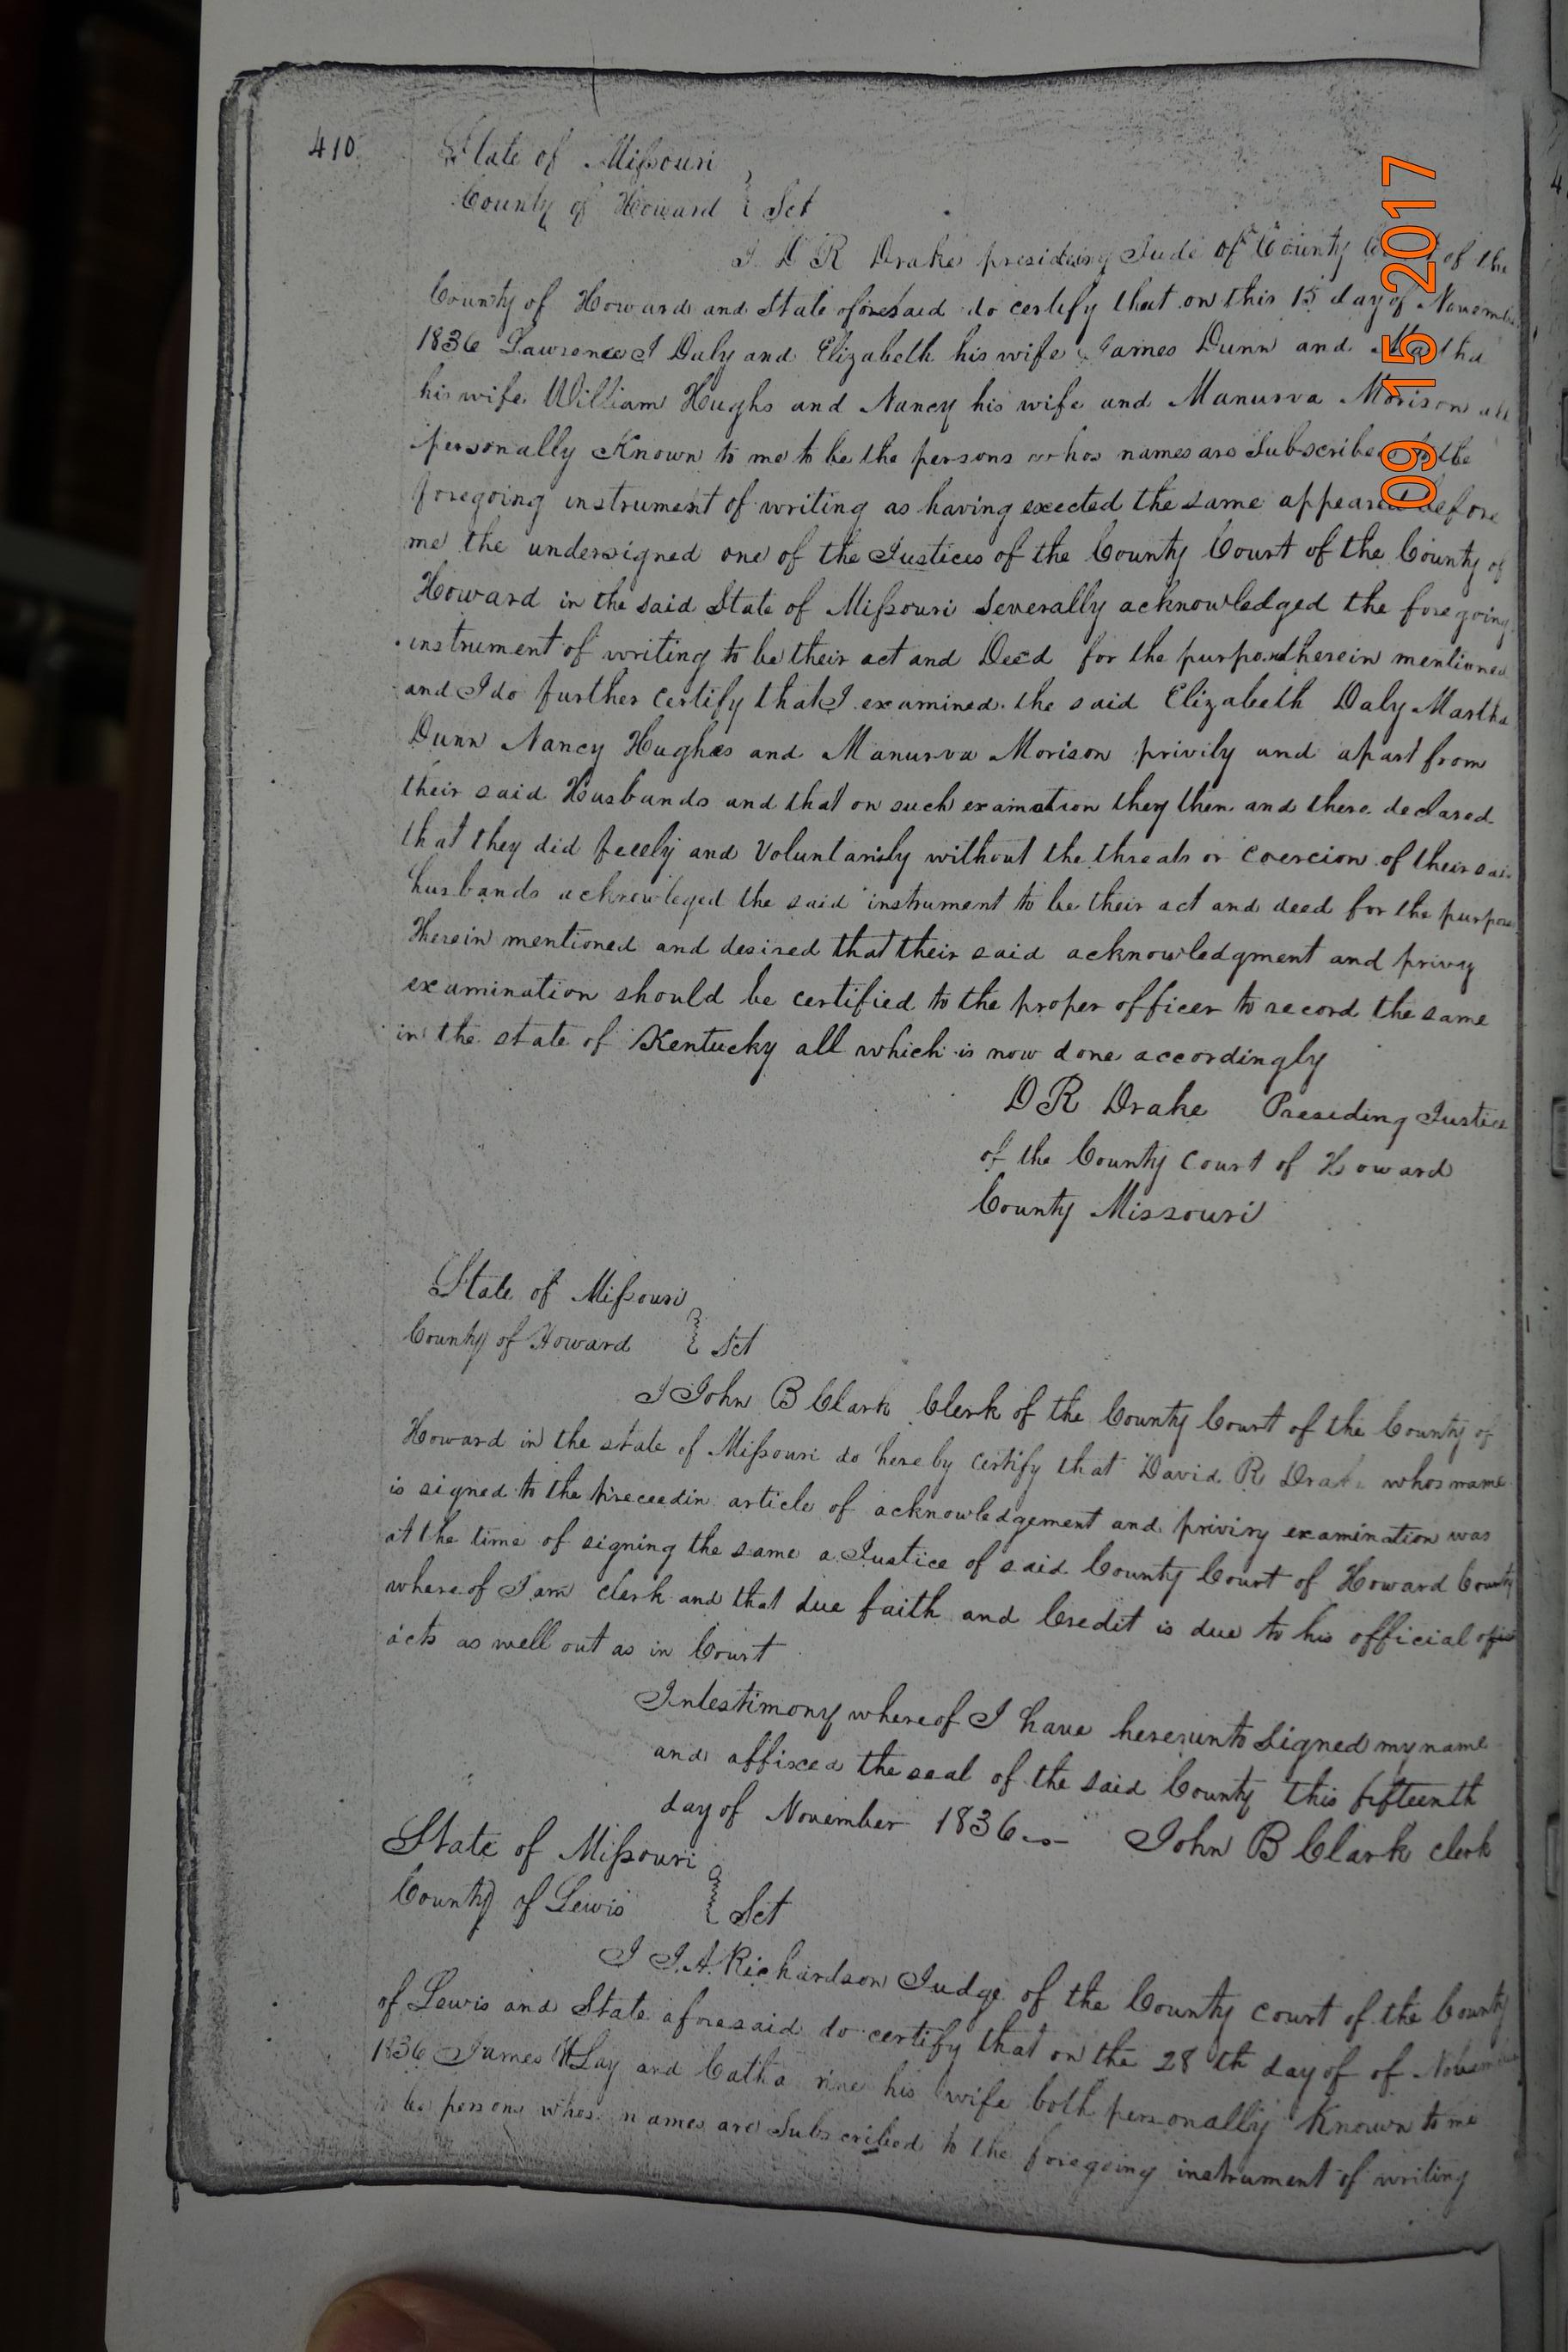 410
State of Missouri
County of Howard } Sct
I D R Drake presideing Jude of County of the
County of Howard and State aforesaid do certify that on this 15 day of November
1836 Lawrence J Daly and Elizabeth his wife James Dunn and Martha
his wife William Hughs and Nancy his wife and Manurva Morison all
personally Known to me to be the persons whos names are Subscribed to the
foregoing instrument of writing as having exected the same appeared before
me the undersigned one of the Justices of the County Court of the County of
Howard in the said State of Missouri Severally acknowledged the foregoing
instrument of writing to be their act and Deed for the purposes therein mentioned
and I do further certify that I examined the said Elizabeth Daly Martha
Dunn Nancy Hughes and Manurva Morison privily and apart from
their said Husbands and that on such examation they then and there declared
that they did feely and Voluntarily without the threats or coercion of their said
husbands acknowleged the said instrument to be their act and deed for the purpose
therein mentioned and desired that their said acknowledgment and privy
examination should be certified to the proper officer to record the same
in the state of Kentucky all which is now done accordingly
D R Drake Preseding Justice
of the County Court of Howard
County Missouri
State of Missouri
County of Howard } Sct
I John B Clark Clerk of the County Court of the County of
Howard in the state of Missouri do hereby certify that David R Drake whos name
is signed to the preceedin article of acknowledgement and priviry examination was
at the time of signing the same a Justice of said County Court of Howard County
whereof I am clerk and that due faith and Credit is due to his official
acts as well out as in Court
In testimony whereof I have hereunto Signed my name
and affixed the seal of the said County this fifteenth
day of November 1836 John B Clark clerk
State of Missouri
County of Lewis } Sct
I J. A. Richardson Judge of the County court of the County
of Lewis and State aforesaid do certify that on the 28th day of of November
1836 James Lay and Catha rine his wife both personally Known to me
to be persons whos names are Subscribed to the foregoing instrument of writing
09 15 2017